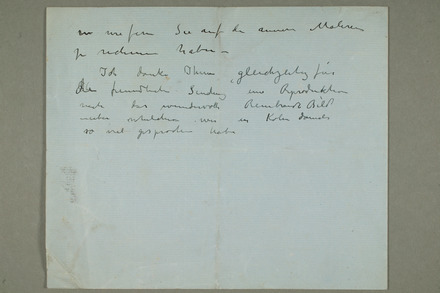 in wie fern Sie auf den armen Maler
zu rechnen haben –
Ich danke Ihnen gleichzeitig für
die freundliche Sendung einer Reproduktion
nach das wundervolle Rembrandt Bild
wie in Köln damals
so viel gesprochen habe